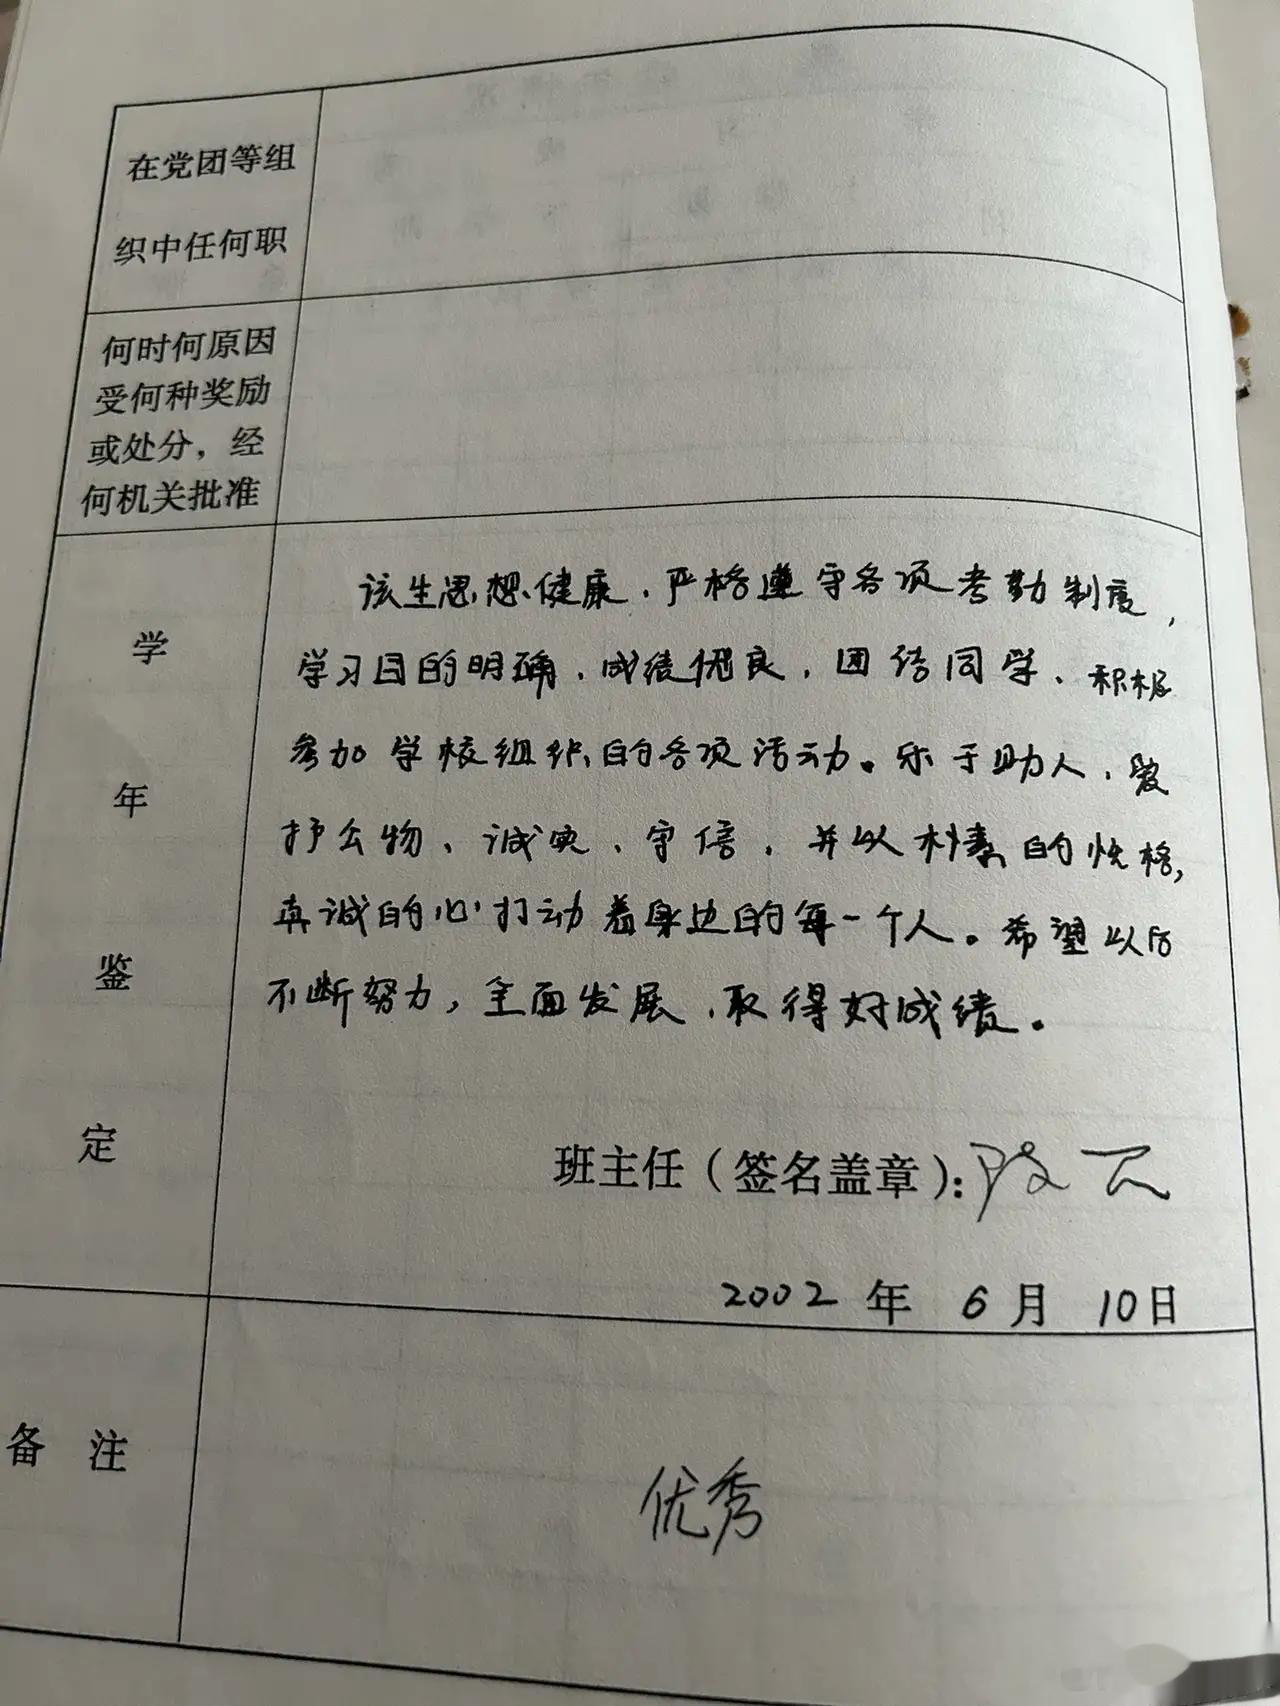 在党团等组
织中任何职
何时何原因
受何种奖励
或处分，经
何机关批准
学
年
鉴
定
该生思想健康，严格遵守各项考勤制度，
学习目的明确，成绩优良，团结同学、积极
参加学校组织的各项活动。乐于助人，爱
护公物、诚实、守信，并以朴素的性格，
真诚的心打动着身边的每一个人。希望以后
不断努力，全面发展，取得好成绩。
班主任（签名盖章）：
2002年6月10日
备注
优秀